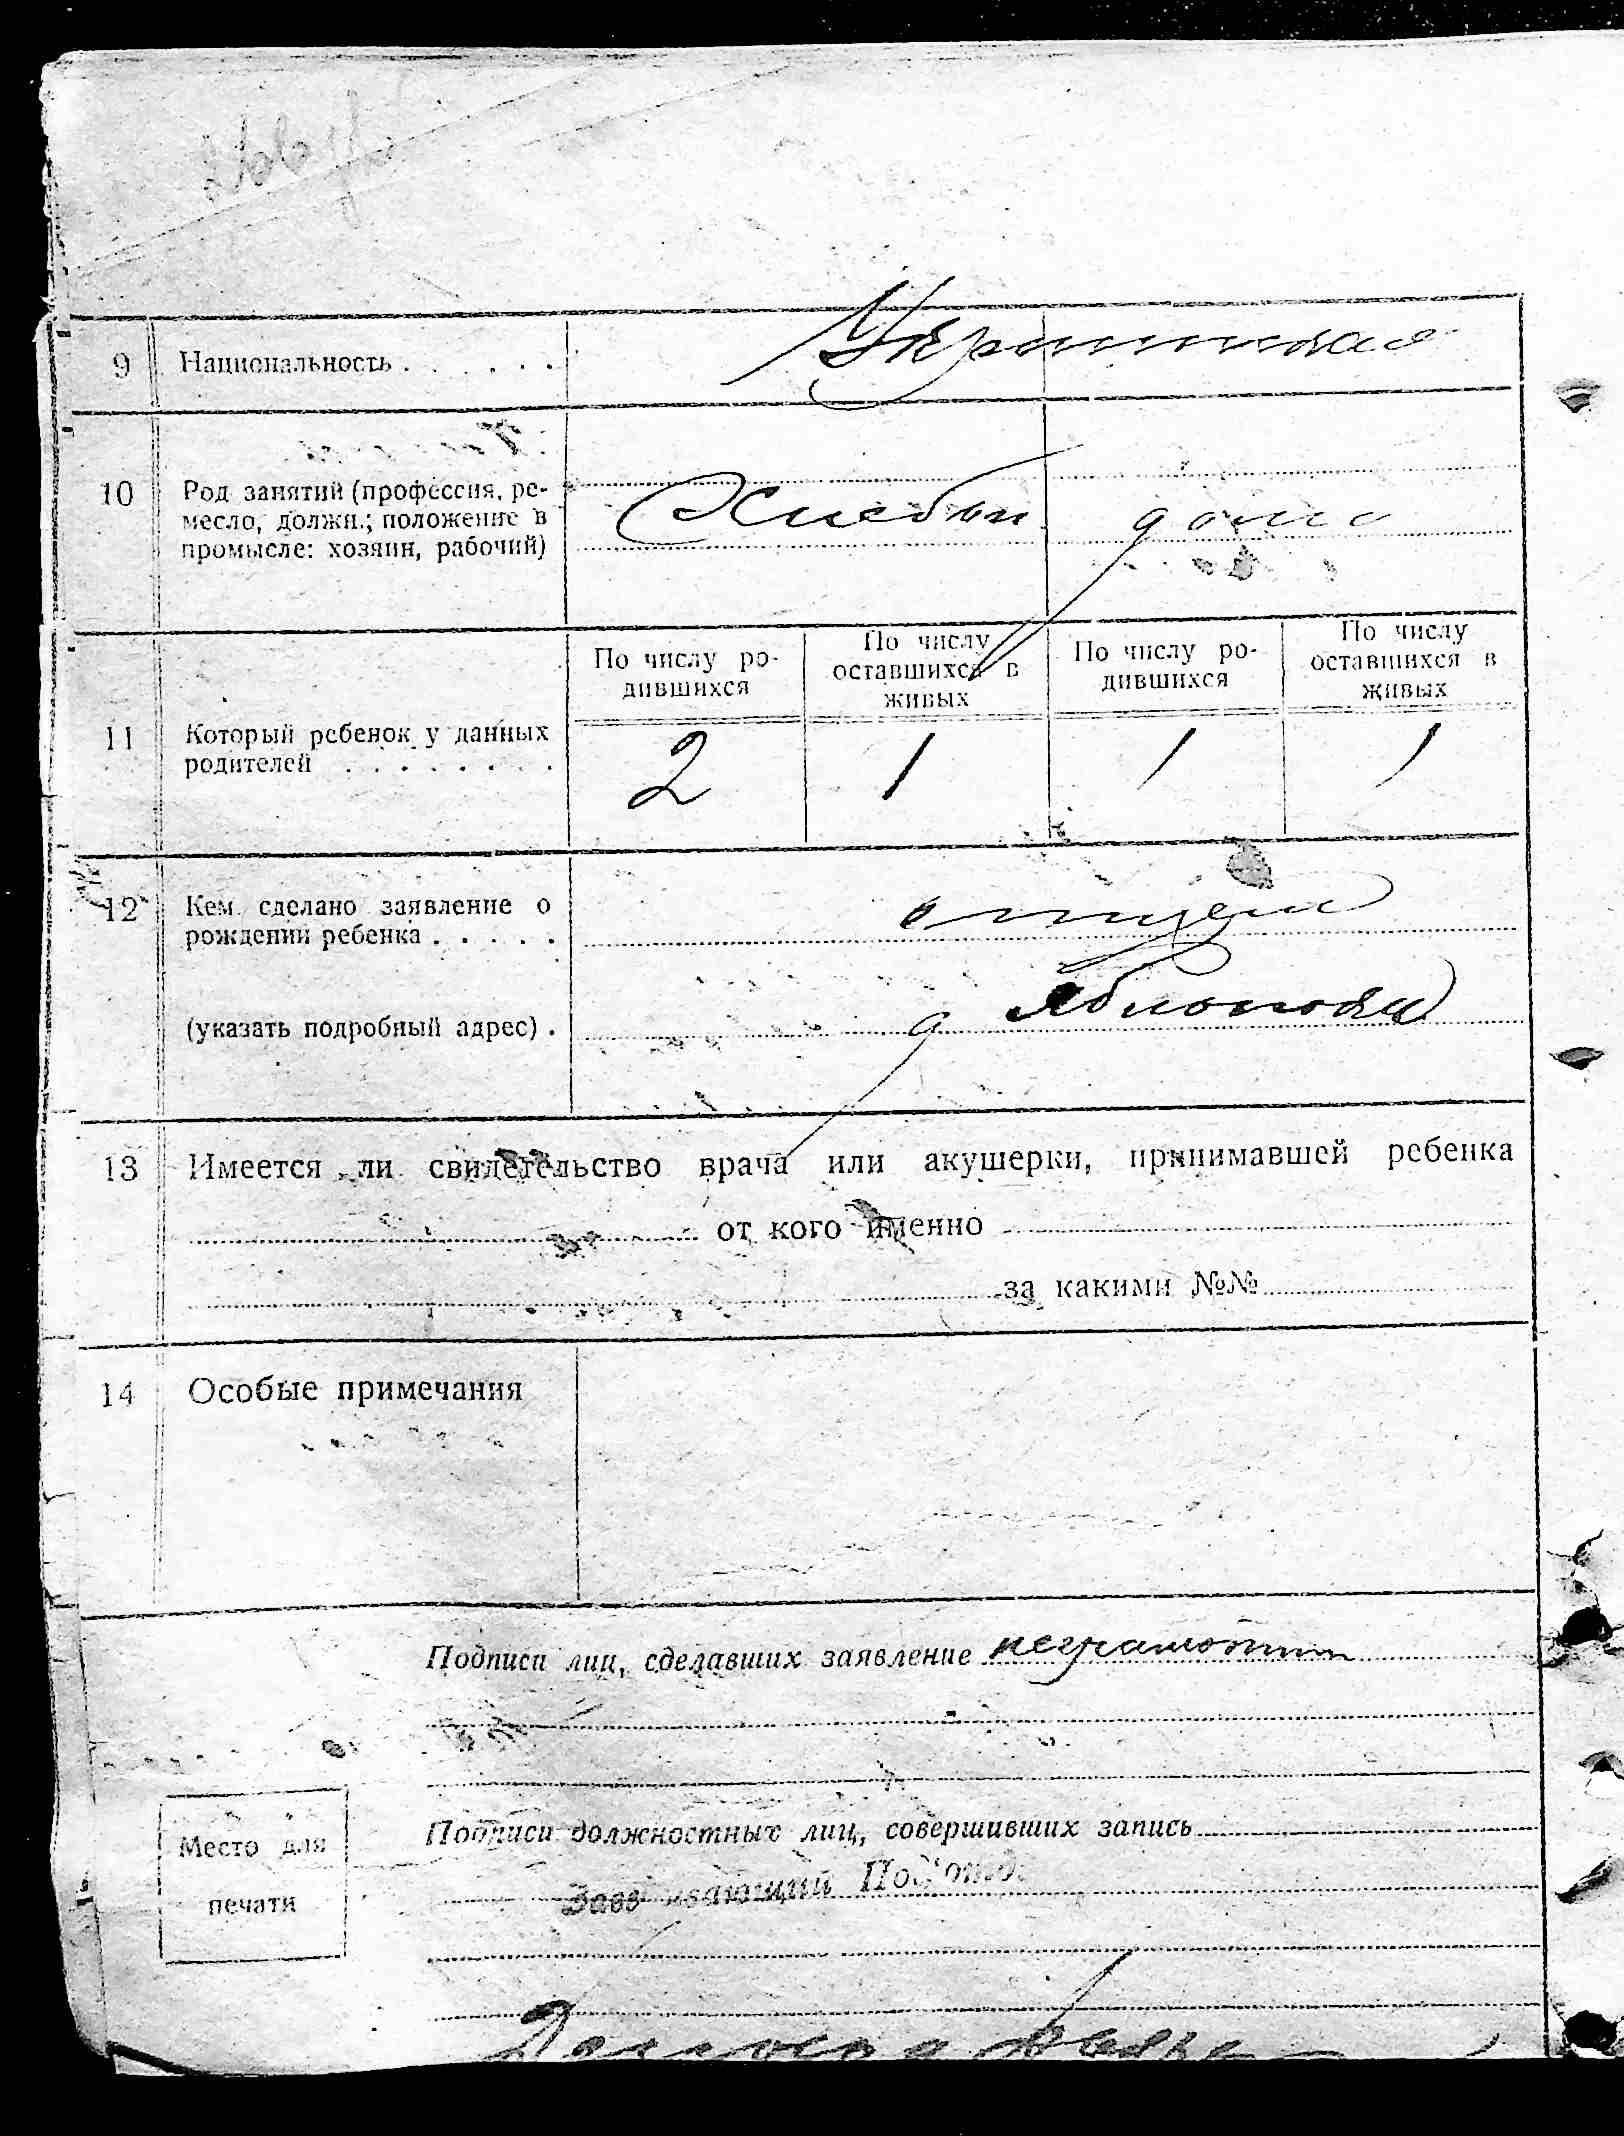 9 Национальность . . . . . . Украинская
10 Род занятий (профессия, ре-
месло, должн.; положение в
промысле: хозяин, рабочий)
Хлебоп дома
По числу ро-
дившихся
По числу
оставшихся в
живых
По числу ро-
дившихся
По числу
оставшихся в
живых
11 Который ребенок у данных
родителей . . . . . . . .
2 1 1 1
12 Кем сделано заявление о
рождении ребенка . . . . .
отцем
(указать подробный адрес) .
д Яблоновка
13 Имеется ли свидетельство врача или акушерки, принимавшей ребенка
от кого именно
за какими №№
14 Особые примечания
Подписи лиц, сделавших заявление неграмотн
Место для
печати
Подписи должностных лиц, совершивших запись
Заведывающий Под'отд.